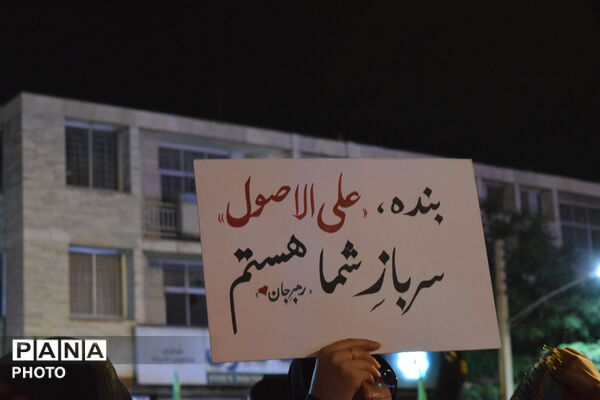 بنده، «علی الاصول»
سرباز شما هستم
«رهبر جان»
PANA
PHOTO